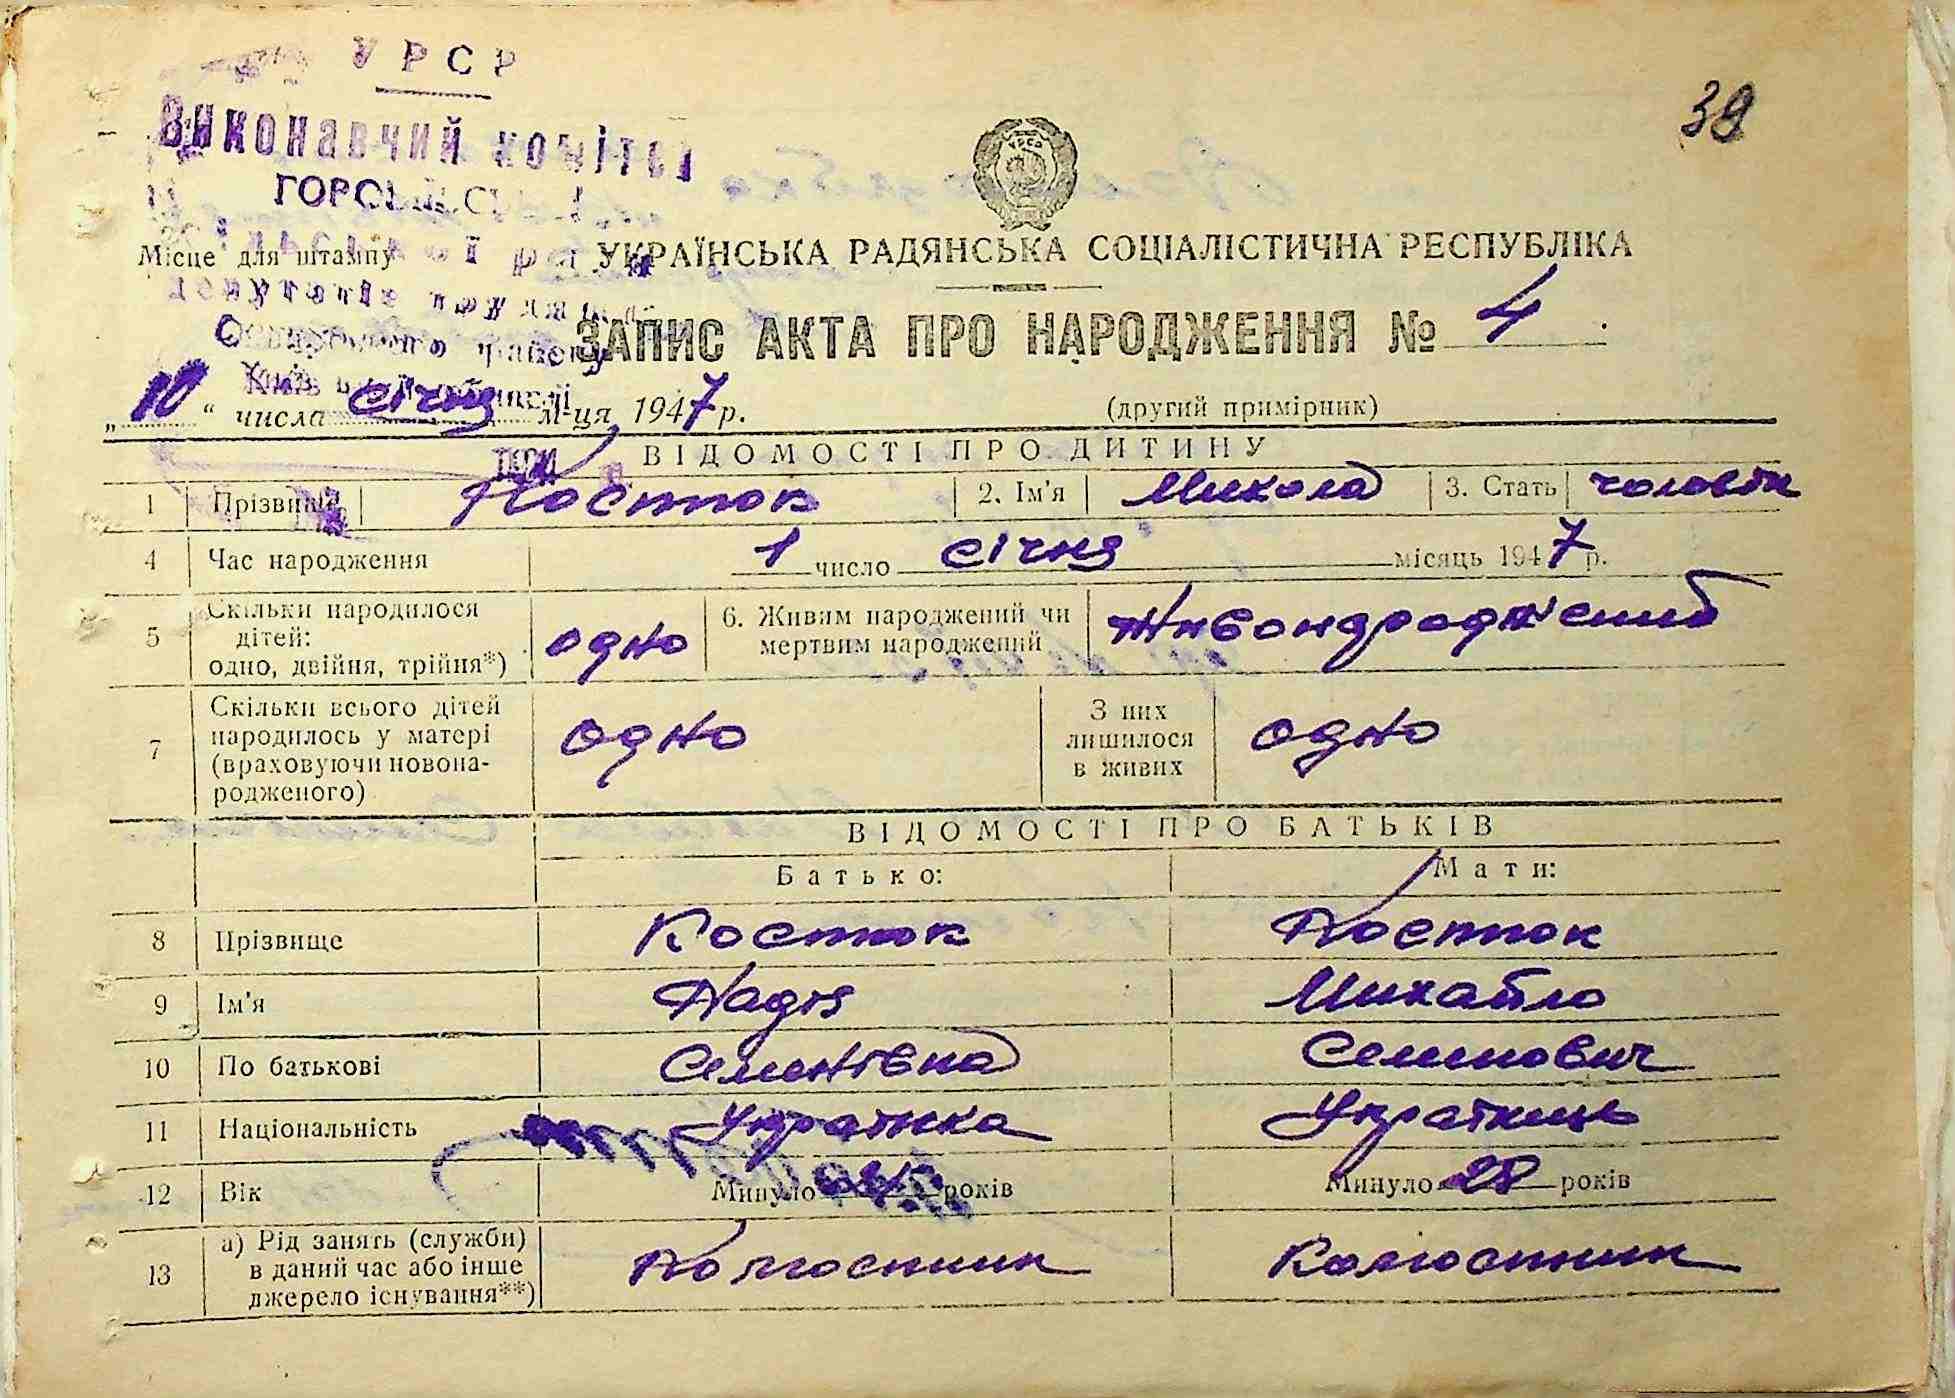 УРСР
39
Виконавчий комітет
УРСР
Місце для штампу
УКРАЇНСЬКА РАДЯНСЬКА СОЦІАЛІСТИЧНА РЕСПУБЛІКА
депутатів трудящих
ЗАПИС АКТА ПРО НАРОДЖЕННЯ № 4
району
„10“ числа січня м-ця 1947 р. (другий примірник)
ВІДОМОСТІ ПРО ДИТИНУ
1 Прізвище Костюк 2. Ім'я Микола 3. Стать чоловік
4 Час народження 1 число січня місяць 1947 р.
5 Скільки народилося дітей: одно, двійня, трійня*) одно 6. Живим народжений чи мертвим народжений
7 Скільки всього дітей народилось у матері (враховуючи новонародженого) одно З них лишилося в живих одно
ВІДОМОСТІ ПРО БАТЬКІВ
Батько: Мати:
8 Прізвище Костюк Костюк
9 Ім'я Надія Михайло
10 По батькові Семенівна Семинович
11 Національність Українка Українць
12 Вік Минуло років Минуло 28 років
13 а) Рід занять (служби) в даний час або інше джерело існування**) Колгоспник Колгоспник